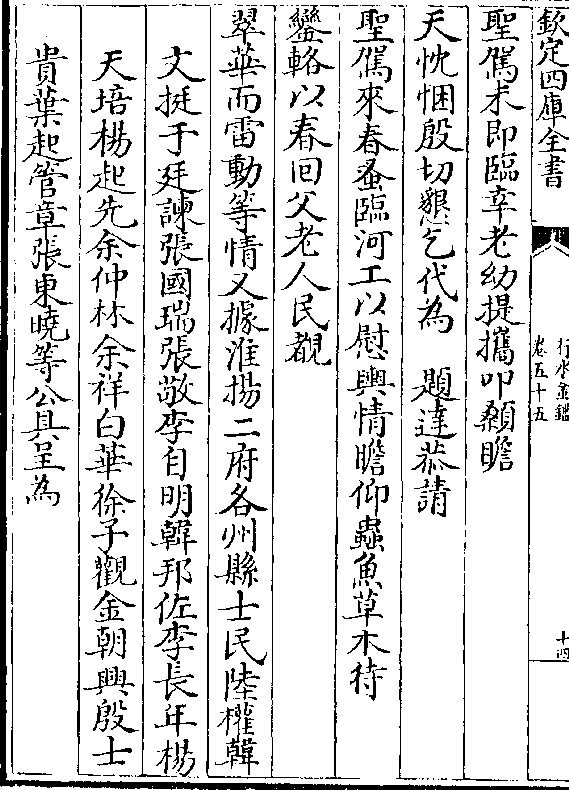 欽定四庫全書
行水金鑑
卷五十五
十四
聖駕未即臨幸老幼提攜叩顙瞻
天忱悃殷切懇乞代為　題達恭請
聖駕來春蚤臨河工以慰輿情瞻仰蟲魚草木待
鑾輅以春回父老人民覩
翠華而雷動等情又據淮揚二府各州縣士民陸權韓
文挺于廷諫張國瑞張敬李自明韓邦佐李長年楊
天培楊起先余仲林余祥白華徐子觀金朝興殷士
貴葉起管章張東曉等公具呈為